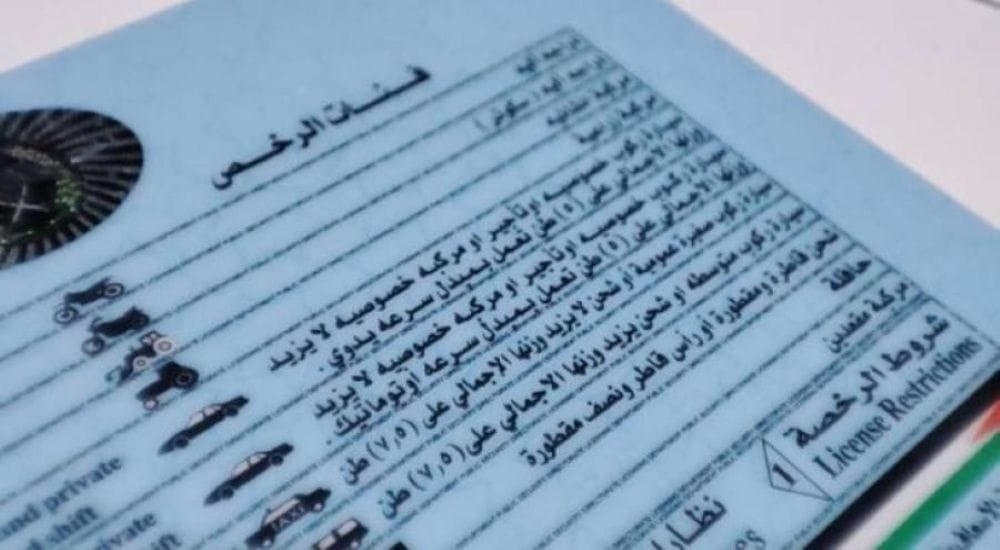 فئات الرخص
دراجة آلية
دراجة آلية (سكوتر)
مركبة إنشائية
مركبة زراعية
سيارة ركوب خصوصيه اوتأجير او مركبه خصوصيه لا يزيد
وزنها الاجمالي على (٥) طن تعمل بمبدل سرعه يدوي.
سيارة ركوب خصوصيه اوتأجير او مركبه خصوصيه لا يزيد
وزنها الاجمالي على (٥) طن تعمل بمبدل سرعه اوتوماتيك.
سيارة ركوب صغيرة عمومية او شحن لايزيد وزنها الاجمالي على (٧,٥) طن
سيارة ركوب متوسطه او شحن يزيد وزنها الاجمالي على (٧,٥) طن
شحن قاطرة ومقطورة اوراس قاطر ونصف مقطورة
حافلة
مركبة مقعدين
شروط الرخصة
License Restrictions
1
and private
shift
private
TAXI